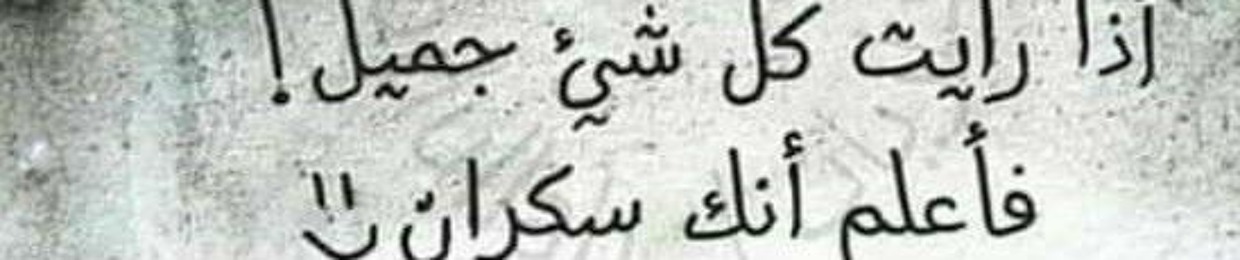 أذا رايت كل شيئ جميل !
فأعلم أنك سكران